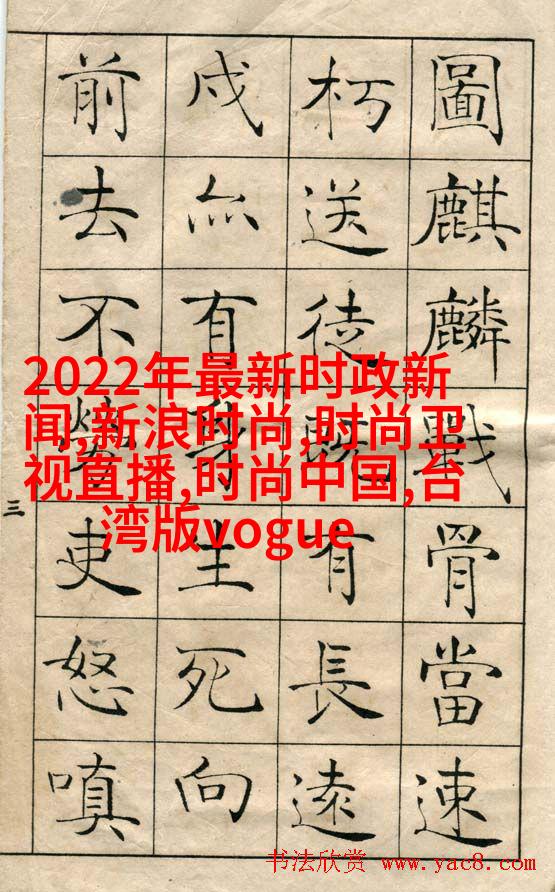 圖麒麟戰骨當速
朽送徒既有長遠
戍亦有身生死向
前去不勞吏怒嗔
三
2022年最新时政新
闻,新浪时尚,时尚卫
视直播,时尚中国,台
湾版vogue
书法欣赏 www.yac8.com